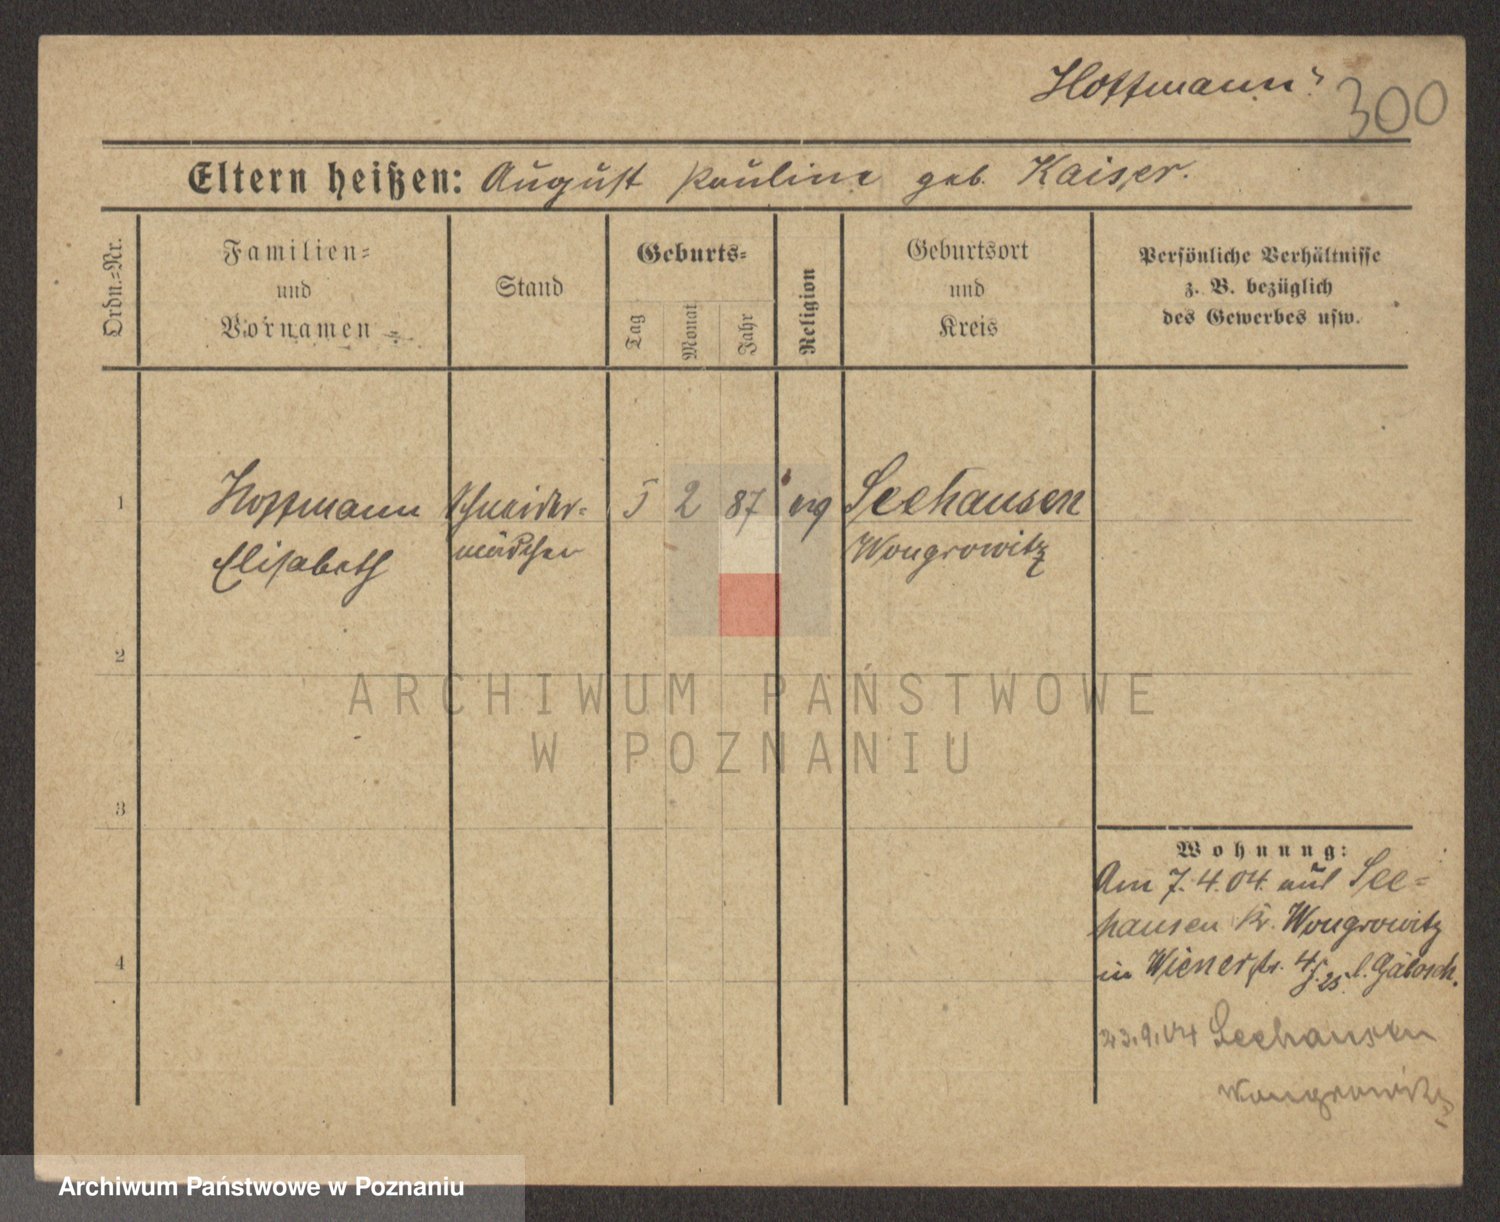 Hoffmann
300
Eltern heißen: August Pauline geb. Kaiser.
Ordn.-Nr.
Familien-
und
Vornamen
Stand
Geburts-
Tag
Monat
Jahr
Religion
Geburtsort
und
Kreis
Persönliche Verhältnisse
z. B. bezüglich
des Gewerbes usw.
1
Hoffmann
Elisabeth
Schneider-
mädchen
5 2 87
evg
Seehausen
Wongrowitz
2
ARCHIWUM PAŃSTWOWE
W POZNANIU
3
Wohnung:
Am 7.4.04. aus See-
hausen Kr. Wongrowitz
in Wienerstr. 4
4
23.9.04 Seehausen
Wongrowitz
Archiwum Państwowe w Poznaniu